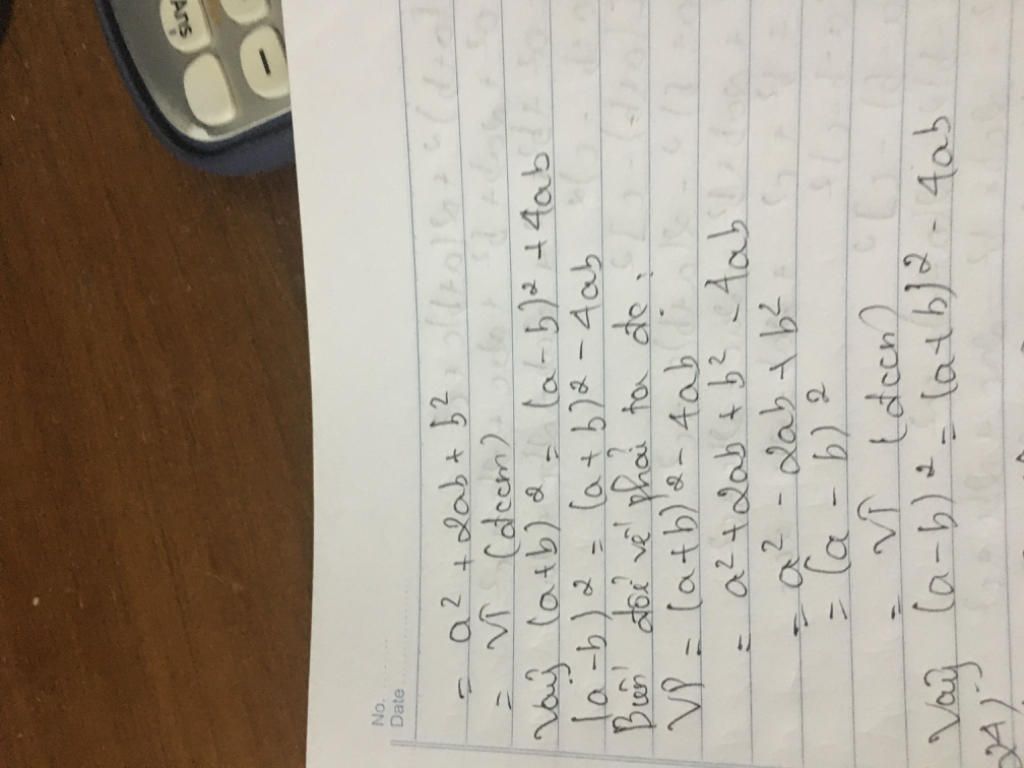 Ans
−
No.
Date
= a² + 2ab + b²
= VT (dccm)
Vậy (a+b)² = (a-b)² + 4ab
(a-b)² = (a+b)² - 4ab
Biến đổi vế phải ta dc:
VP = (a+b)² - 4ab
= a² + 2ab + b² - 4ab
= a² - 2ab + b²
= (a-b)²
= VT (dccm)
Vậy (a-b)² = (a+b)² - 4ab
24)